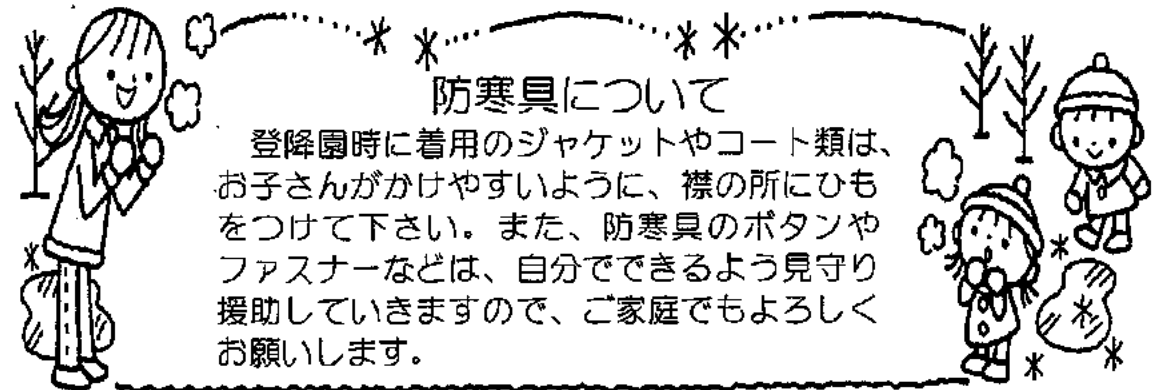 防寒具について
登降園時に着用のジャケットやコート類は、
お子さんがかけやすいように、襟の所にひも
をつけて下さい。また、防寒具のボタンや
ファスナーなどは、自分でできるよう見守り
援助していきますので、ご家庭でもよろしく
お願いします。